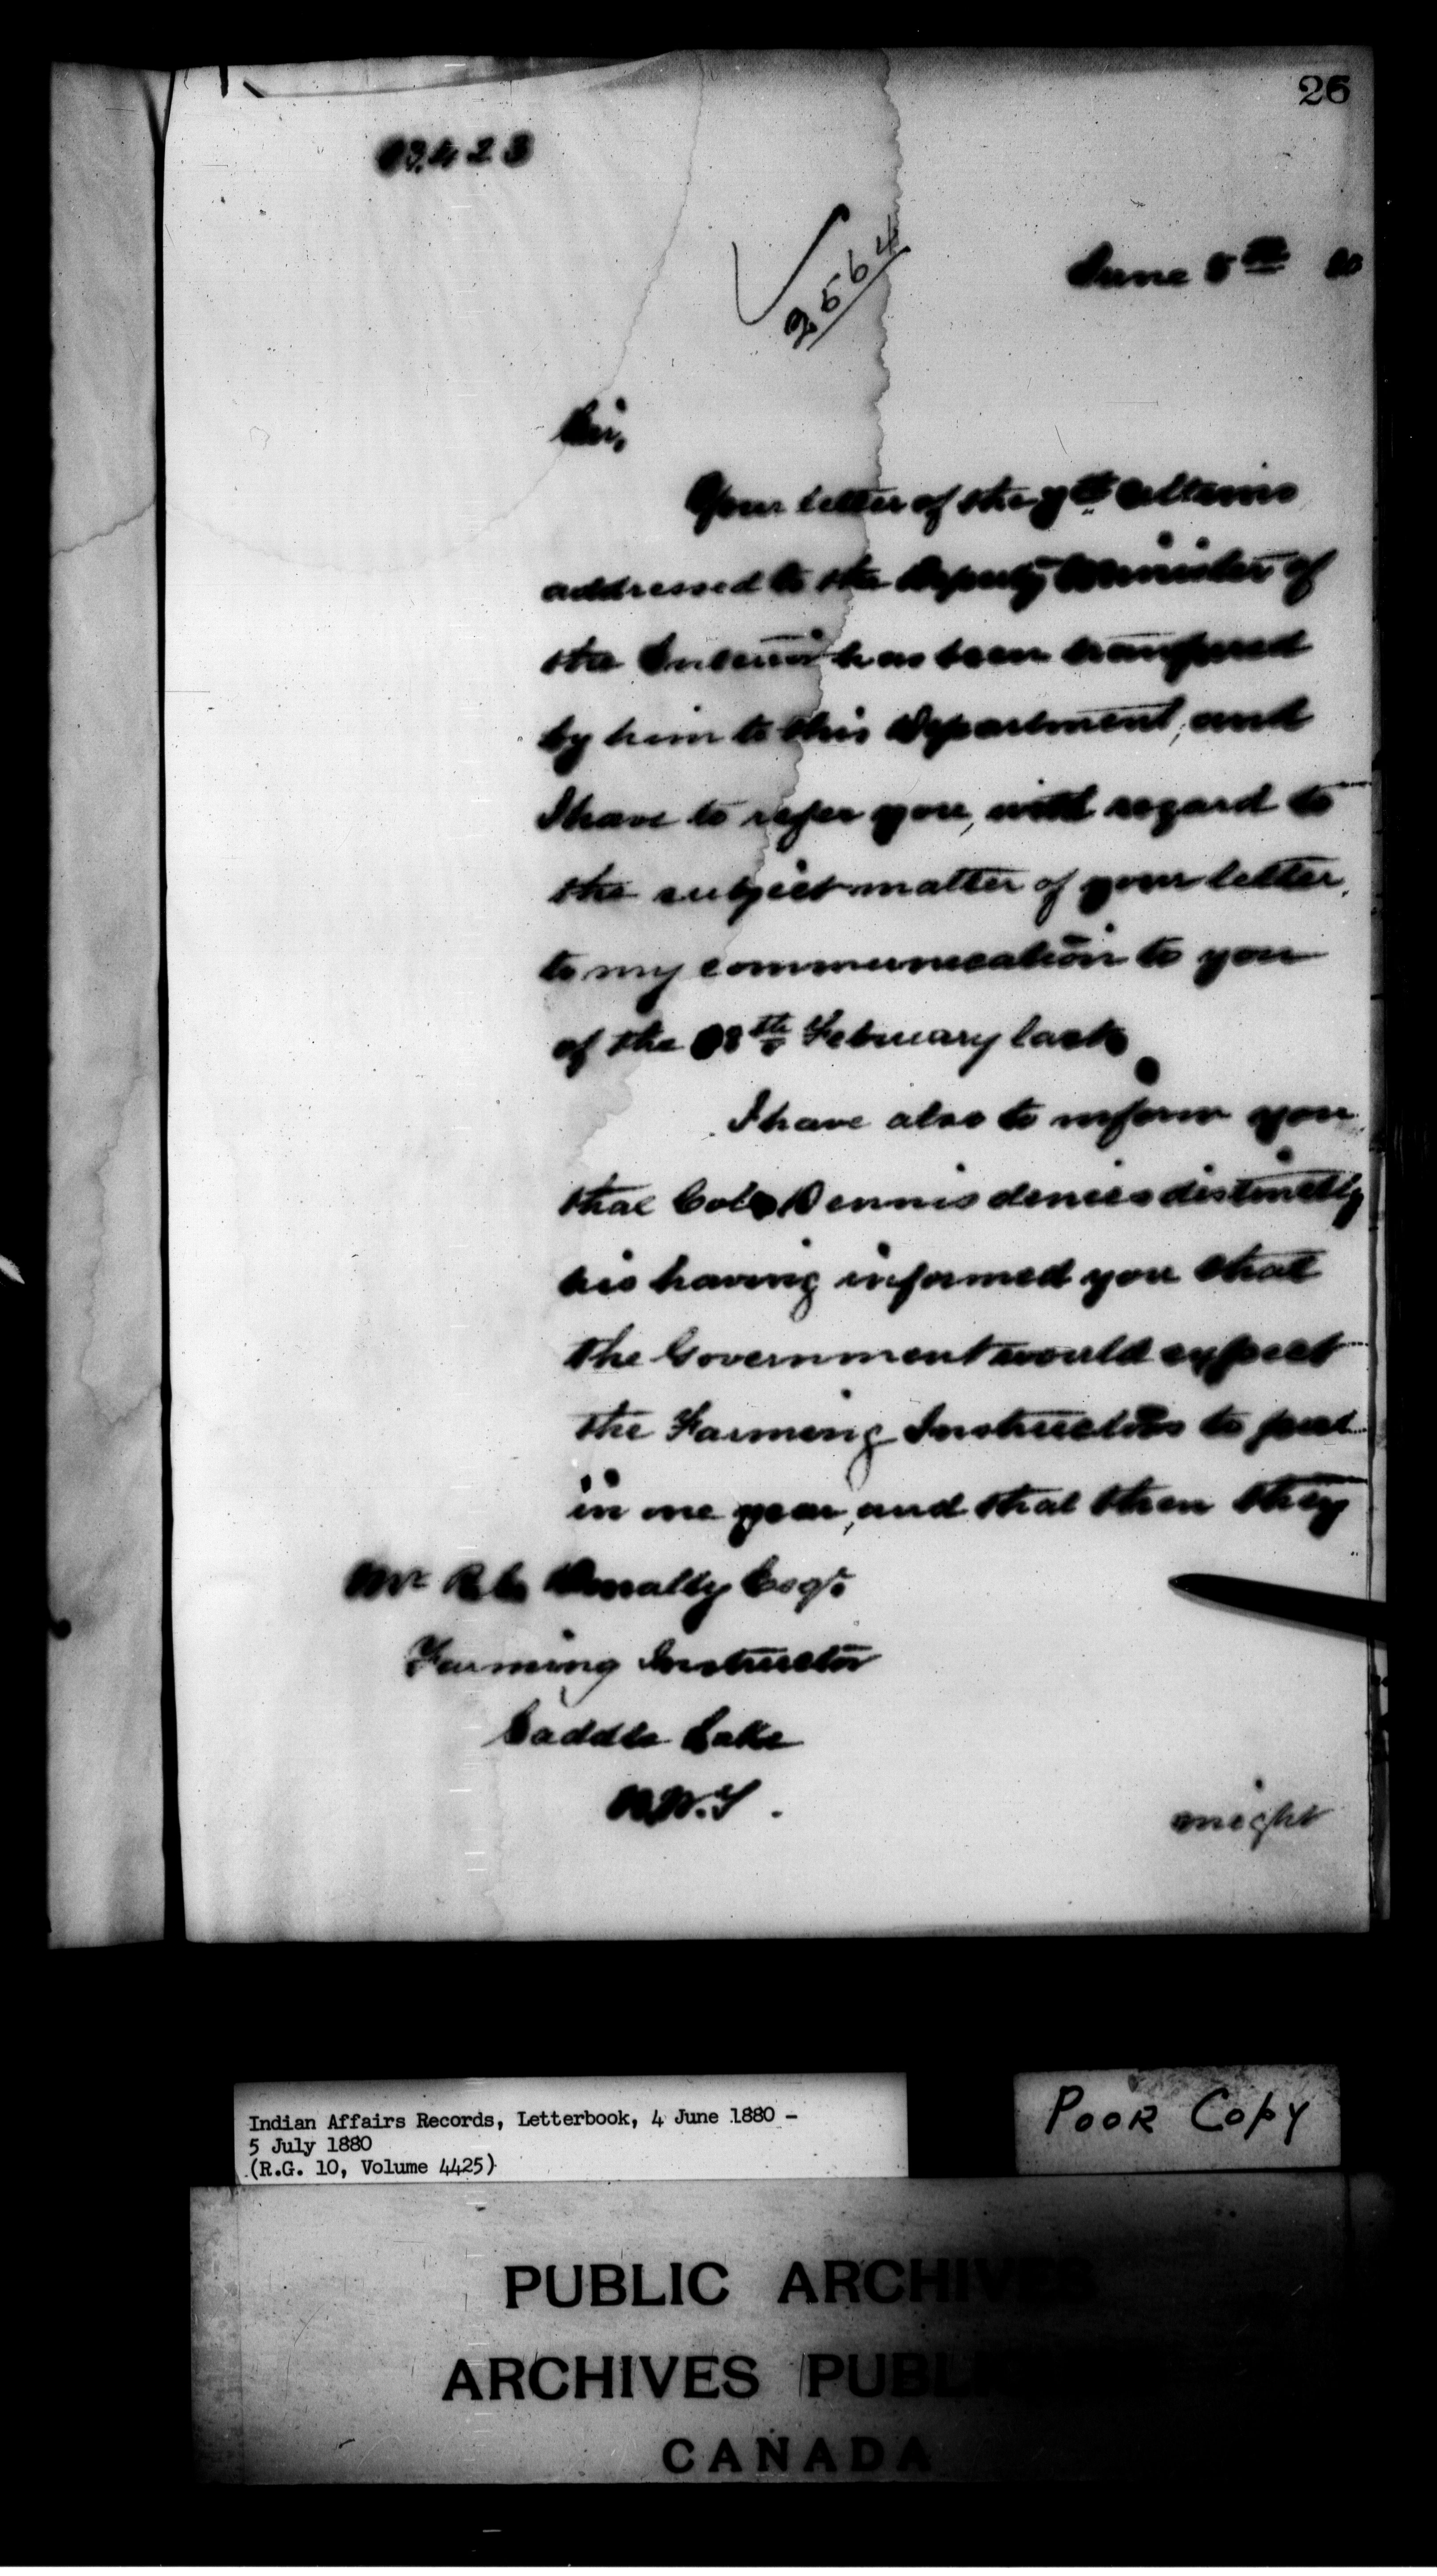 26
2564
June 8th 80
Sir,
Your letter of the 7th Ultimo
addressed to the Deputy Minister of
the Interior has been transfered
by him to this Department, and
I have to refer you, with regard to
the subject matter of your letter,
to my communication to you
of the 18th February last.
I have also to inform you
that Col. Dennis denies distinctly
his having informed you that
the Government would expect
the Farming Instructors to put
in one year, and that then they
Mr Esqr
Farming Instructor
Saddle Lake
N.W.T.
might
Indian Affairs Records, Letterbook, 4 June 1880 -
5 July 1880
(R.G. 10, Volume 4425)
POOR COPY
PUBLIC ARCHIVES
ARCHIVES PUBLIQUES
CANADA